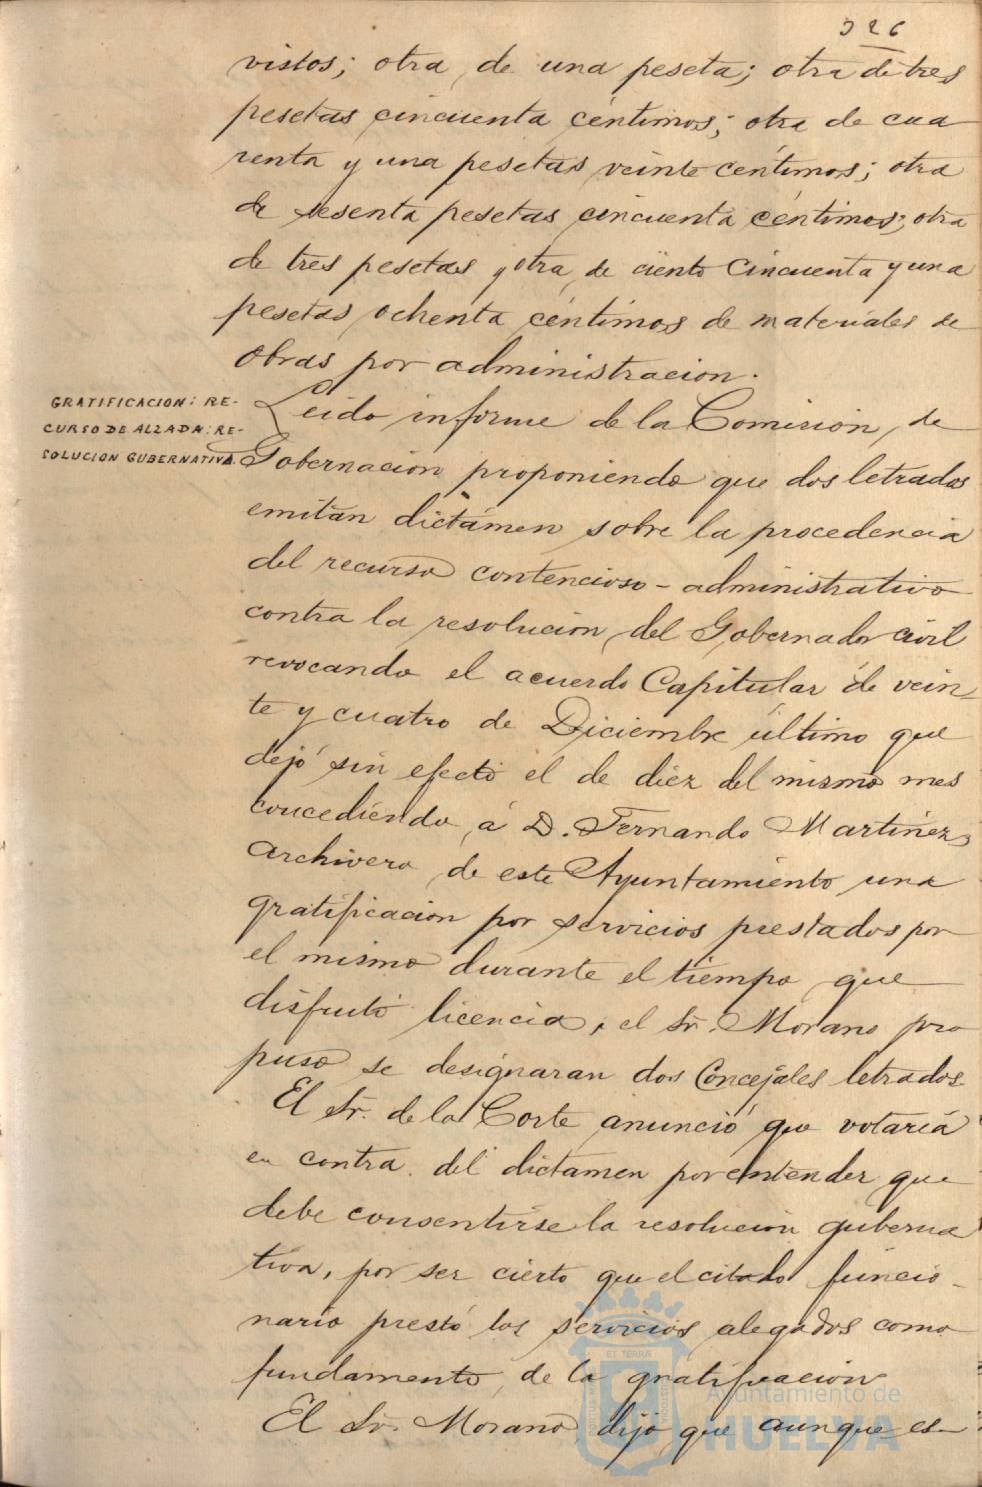 326
vistos; otra de una peseta; otra de tres
pesetas cincuenta céntimos; otra de cua
renta y una pesetas veinte céntimos; otra
de sesenta pesetas cincuenta céntimos; otra
de tres pesetas y otra de ciento cincuenta y una
pesetas ochenta céntimos de materiales de
obras por administracion.
GRATIFICACION: RE-
CURSO DE ALZADA: RE-
SOLUCION GUBERNATIVA.
Leido informe de la Comision de
Gobernacion proponiendo que dos letrados
emitan dictámen sobre la procedencia
del recurso contencioso-administrativo
contra la resolucion del Gobernador civil
revocando el acuerdo Capitular de vein
te y cuatro de Diciembre último que
dejó sin efecto el de diez del mismo mes
concediendo á D. Fernando Martinez
Archivero de este Ayuntamiento una
gratificacion por servicios prestados por
el mismo durante el tiempo que
disfrutó licencia, el Sr. Morano pro
puso se designaran dos Concejales letrados.
El Sr. de la Corte anunció que votaría
en contra del dictamen por entender que
debe consentirse la resolucion guberna
tiva, por ser cierto que el citado funcio-
nario prestó los servicios alegados como
fundamento de la gratificacion
El Sr. Morano dijo que aunque es-
ET TERRÆ
Ayuntamiento de
HUELVA